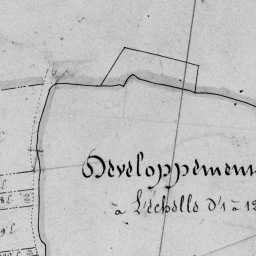 Developpement
à L'échelle D'1 à 12